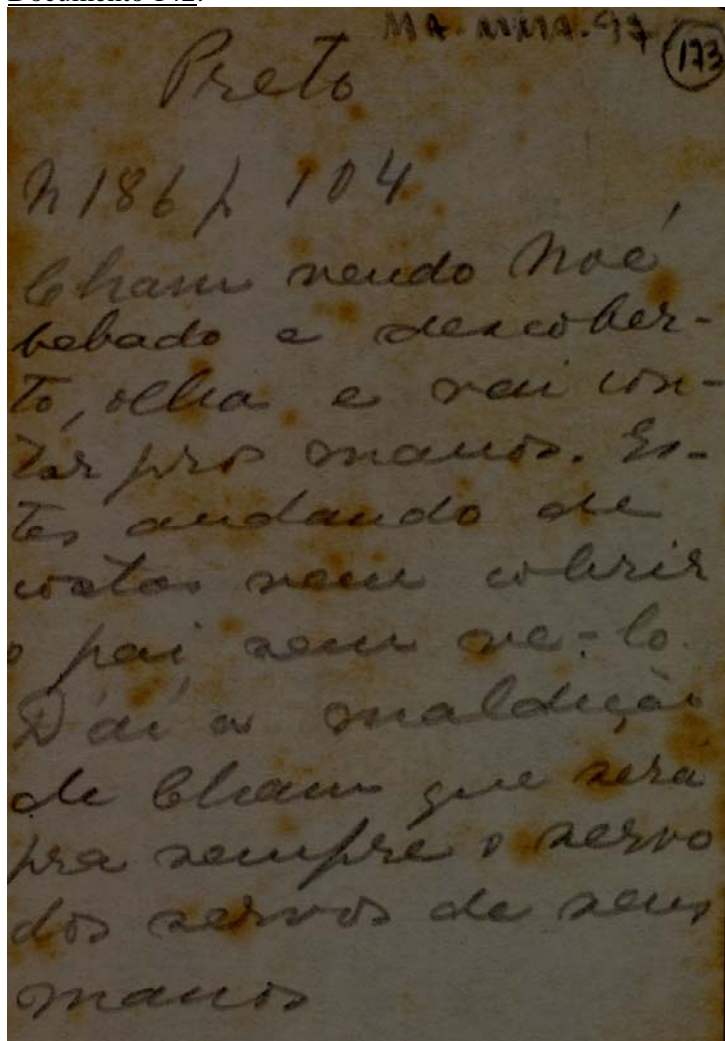 Documento 142:
MA-MMA-97
173
Preto
n 186 p 104
Cham vendo Noé
bebado e descober-
to, olha e vai con-
tar pros manos. Es-
tes andando de
costas vem cobrir
o pai sem ve-lo.
Daí a maldição
de Cham que será
pra sempre o servo
dos servos de seus
manos